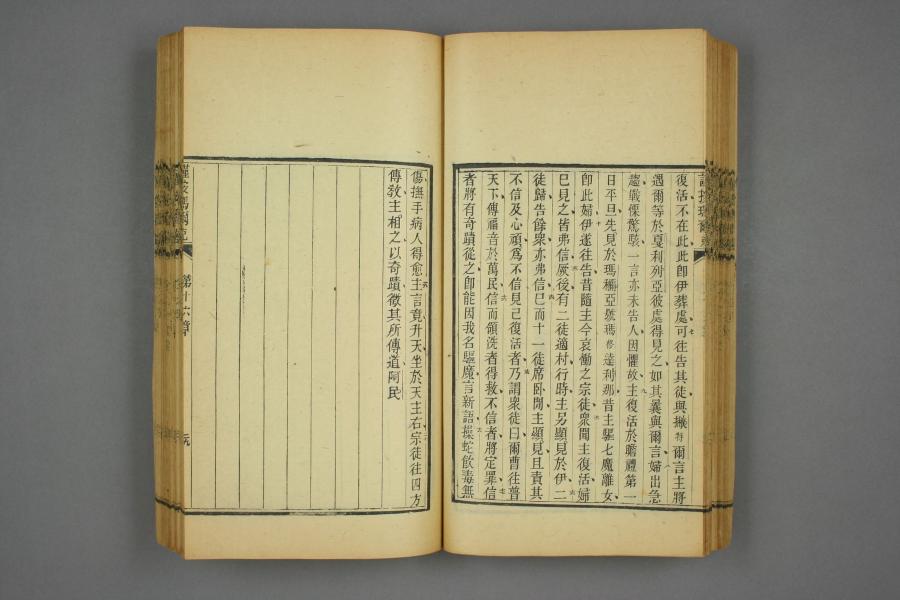 復活不在此此卽伊葬處可往告其徒與撇特爾言主將
遇爾等於戛利列亞彼處得見之如其曩與爾言婦出急
趨戰慄驚駭一言亦未告人因懼故主復活於瞻禮第一
日平旦先見於瑪利亞號瑪格達利那昔主驅七魔離女
卽此婦伊遂往告昔隨主今哀慟之宗徒衆聞主復活婦
巳見之皆弗信厥後有二徒適村行時主另顯見於伊二
徒歸告餘衆亦弗信巳而十一徒席卧閒主顯見且責其
不信及心頑爲不信見己復活者乃謂衆徒曰爾曹往普
天下傳福音於萬民信而領洗者得救不信者將定罪信
者將有奇蹟從之卽能因我名驅魔言新語操蛇飲毒無
傷撫手病人得愈主言竟升天坐於天主右宗徒往四方
傳敎主相之以奇蹟徵其所傳道阿民
第十六章